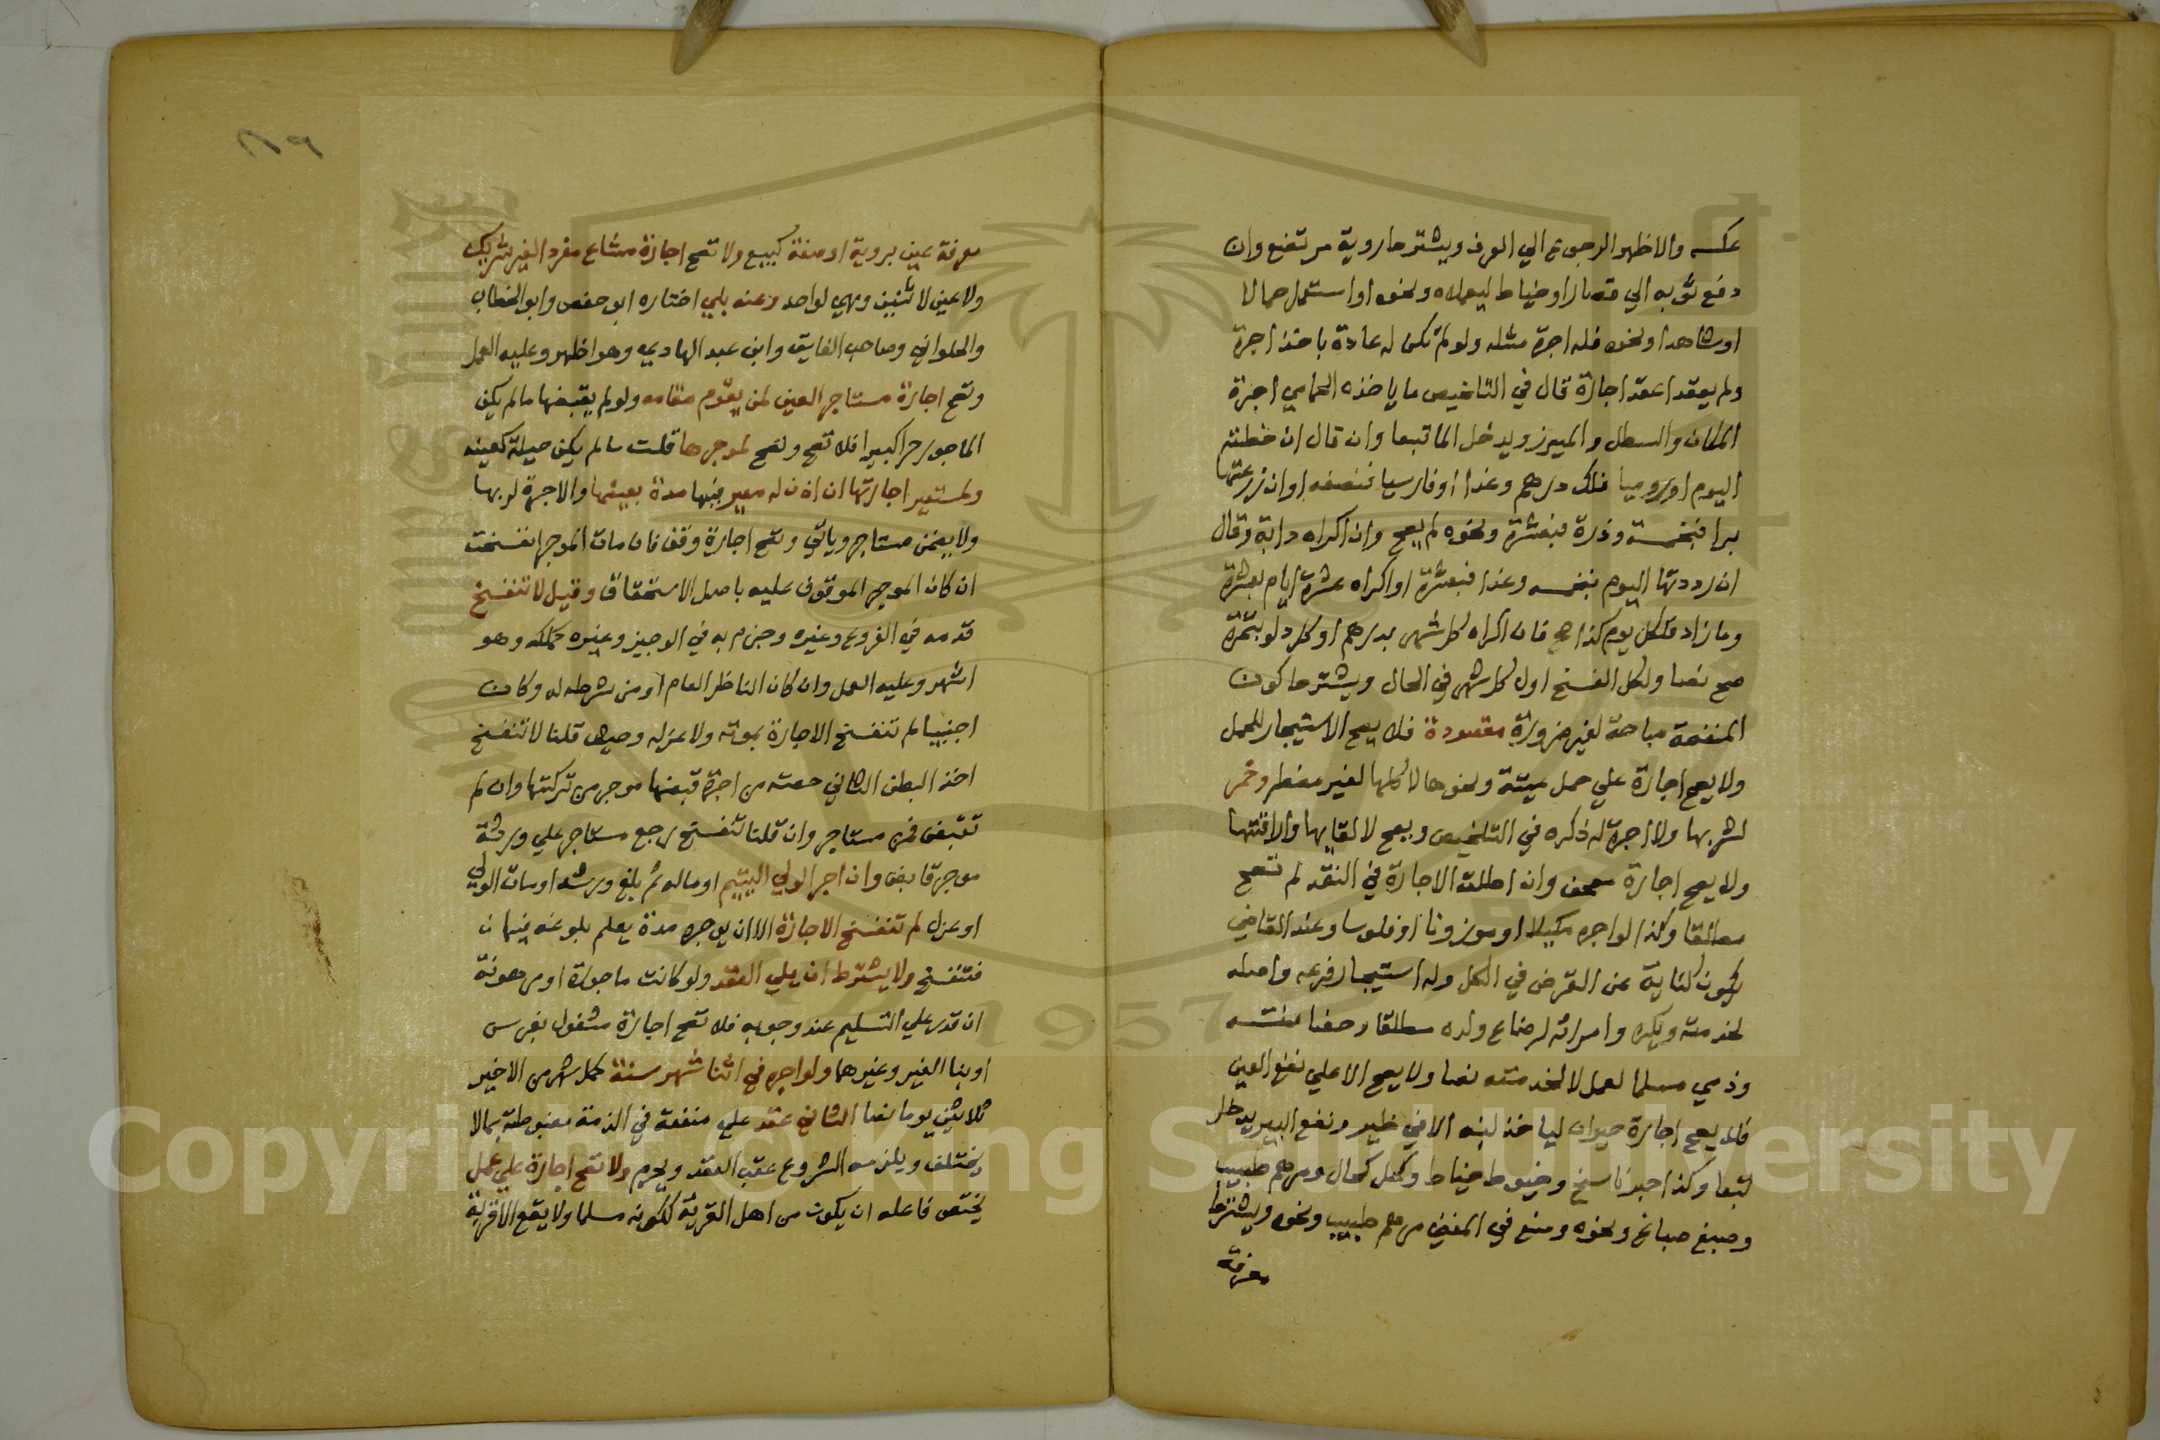 عكسه والاظهر الرجوع الي العرف ويشترط روية مرتضع وان
دفع ثوبه الي قصار او خياط ليعملاه ونحوه او استعمل حمالا
او شاهدا ونحوه فله اجرة مثله ولو لم تكن له عادة باخذ اجرة
ولم يعقدا عقد اجارة قال في التلخيص ما ياخذه الحمامي اجرة
المكان والسطل والميزر ويدخل الما تبعا وان قال ان خطته
اليوم او روميا فلك درهم وغدا او فارسيا فنصفه او ان زرعتها
برا فبخمسة وذرة فبعشرة ونحوه لم يصح وان اكراه دابة وقال
ان رددتها اليوم بخمسه وغدا فبعشرة او اكراه عشرة ايام بعشرة
وما زاد فلكل يوم كذا صح فان اكراه كل شهر بدرهم او كل دلو بتمرة
صح نصا ولكل الفسخ اول كل شهر في الحال ويشترط كون
المنفعة مباحة لغير ضرورة مقصودة فلا يصح الاستيجار للحمل
ولا يصح اجارة علي حمل ميتة ونحوها لاكلها لغير مضطر وخمر
لشربها ولا اجرة له ذكره في التلخيص ويصح لالقايها والاقتها
ولا يصح اجارة مصحف وان اطلقت الاجارة في النقد لم تصح
مطلقا وكذا لو اجره مكيلا او موزونا او فلوسا وعند القاضي
يكون كناية عن القرض في الكل وله استيجار فرعه واصله
لخدمته ويكره وامراته لرضاع ولده مطلقا وحضانته
وذمي مسلما لعمل لا لخدمته نصا ولا يصح الا علي نفع العين
فلا يصح اجارة حيوان لياخذ لبنه الا في ظير ونفع البير يدخل
تبعا وكذا حبر ناسخ وخيوط خياط وكحل كحال ومرهم طبيب
وصبغ صباغ ونحوه ومنع في المغني مرهم طبيب ونحوه ويشترط
معرفة
معرفة عين بروية او صفة كبيع ولا تصح اجارة مشاع مفرد الغير شريك
ولا عين لاثنين وهي لواحد وعنه بلي اختاره ابو حفص وابو الخطاب
والحلواني وصاحب الفايق وابن عبد الهادي وهو اظهر وعليه العمل
وتصح اجارة مستاجر العين لمن يقوم مقامه ولو لم يقبضها ما لم يكن
الماجور حرا كبيرا فلا تصح وتصح لموجرها قلت ما لم يكن حيلة كعينه
ولمستعير اجارتها ان اذن له معير فيها مدة بعينها والاجرة لربها
ولا يضمن مستاجر وياتي وتصح اجارة وقف فان مات الموجر انفسخت
ان كان الموجر الموقوف عليه باصل الاستحقاق وقيل لا تنفسخ
قدمه في الفروع وغيره وجزم به في الوجيز وغيره كملكه وهو
اشهر وعليه العمل وان كان الناظر العام او من شرطه له وكان
اجنبيا لم تنفسخ الاجارة بموته ولا عزله وحيث قلنا لا تنفسخ
اخذ البطن الثاني حصته من اجرة قبضها موجر من تركتها وان لم
تقبض فمن مستاجر وان قلنا تنفسخ رجع مستاجر علي ورثة
موجر قابض وان اجر الولي اليتيم او ماله ثم بلغ ورشد او مات الولي
او عزل لم تنفسخ الاجارة الا ان يوجره مدة يعلم بلوغه فيها ن
فتنفسخ ولا يشترط ان يلي العقد ولو كانت ماجورة او مرهونة
ان قدر علي التسليم عند وجوبه فلا تصح اجارة مشغول بغرس
او بنا الغير وغيرهما ولو اجره في اثنا شهر سنة كمل شهر من الاخير
ثلاثين يوما نصا الثاني عقد علي منفعة في الذمة مضبوطة بما لا
يختلف ويلزمه الشروع عقب العقد ويحرم ولا تصح اجارة علي عمل
يختص فاعله ان يكون من اهل القربة ككونه مسلما ولا يقع الا قربة
Copyright © King Saud University
1957